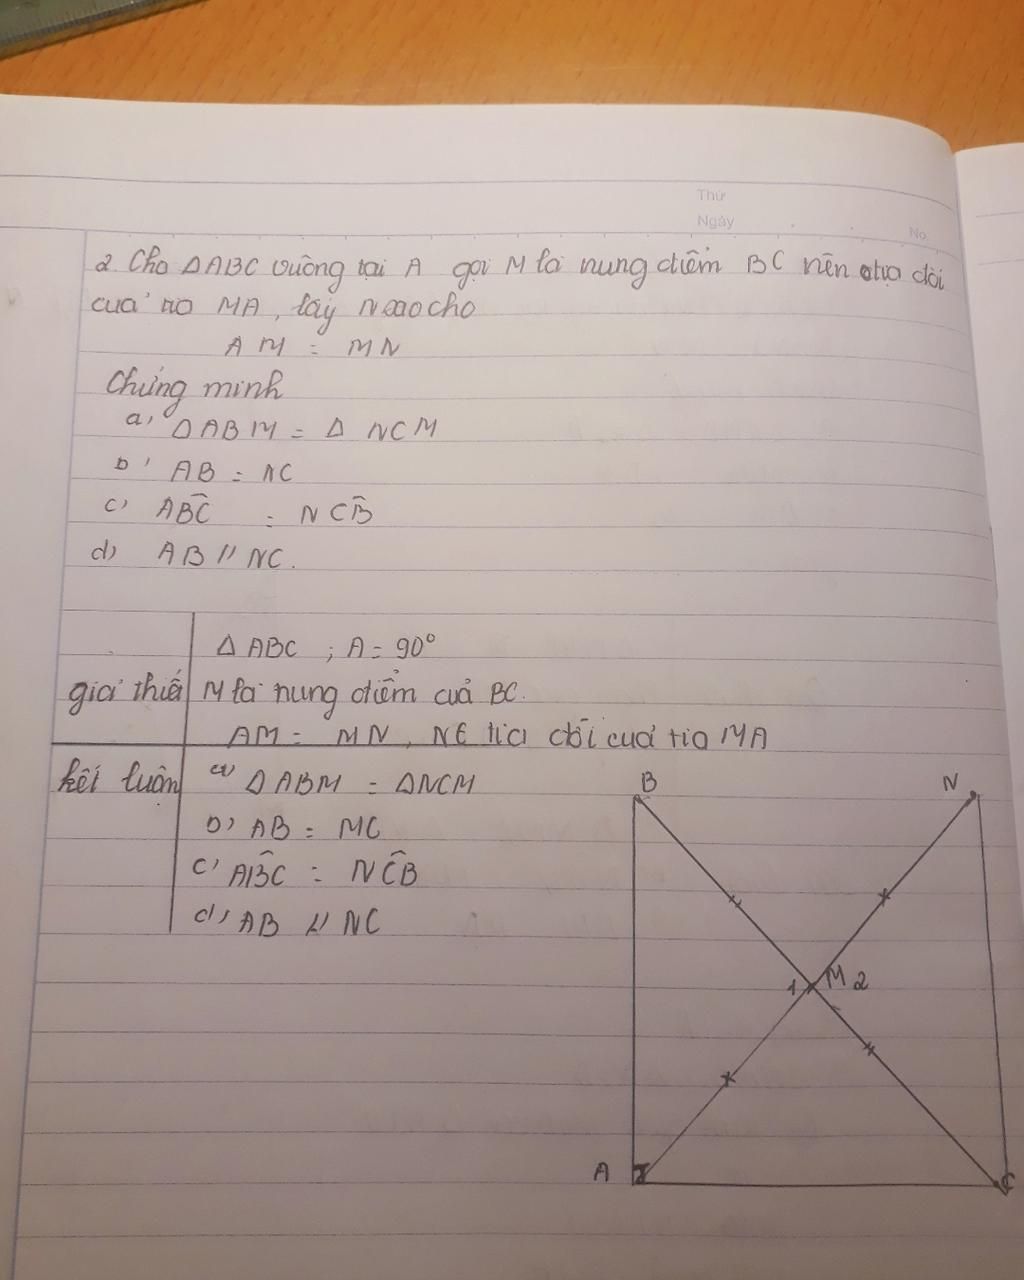 Thứ
Ngày
No.
2. Cho ΔABC vuông tại A gọi M là trung điểm BC trên tia đối
của tia MA, lấy N sao cho
AM = MN
Chứng minh
a, ΔABM = Δ NCM
b, AB = NC
c, AB̂C = NĈB
d, AB // NC.
ΔABC ; A = 90°
giả thiết M là trung điểm của BC.
AM = MN, N∈ tia đối của tia MA
kết luận a, ΔABM = ΔNCM
b, AB = MC
c, AB̂C = NĈB
d, AB // NC
B N
1 M 2
A C